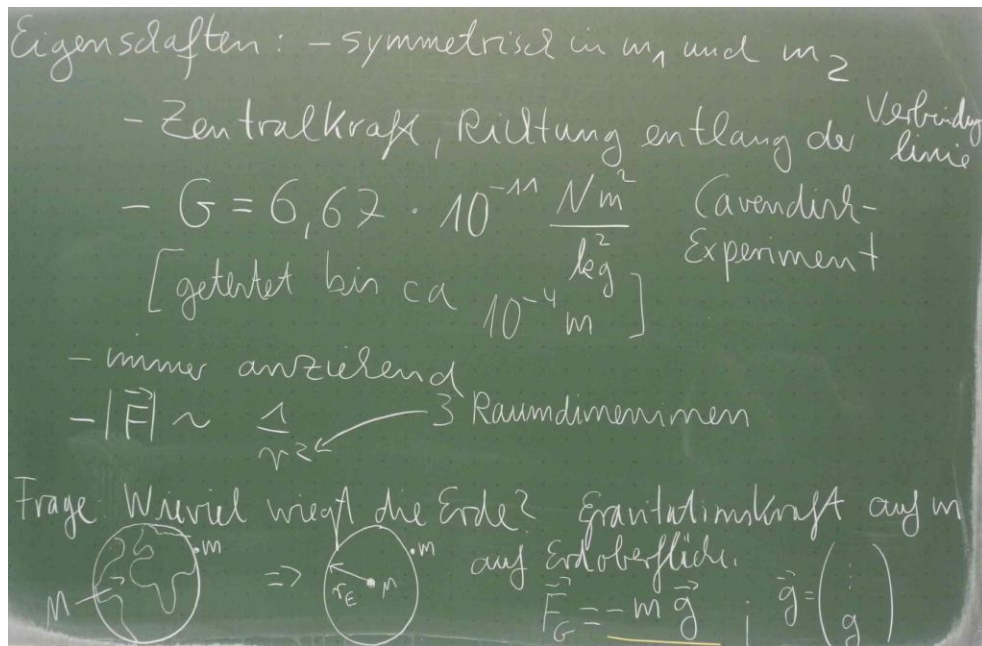 Eigenschaften: - symmetrisch in m₁ und m₂
- Zentralkraft, Richtung entlang der Verbindungslinie
- G = 6,67 · 10⁻¹¹ Nm²/kg² Cavendish-
Experiment
[getestet bin ca 10⁻⁴ m]
- immer anziehend
- |F⃗| ~ 1/r² 3 Raumdimensionen
Frage Wieviel wiegt die Erde? Gravitationskraft auf m
auf Erdoberfläche.
M m => r_E M m F⃗_G = -m g⃗ ; g⃗ = (⋮ g)